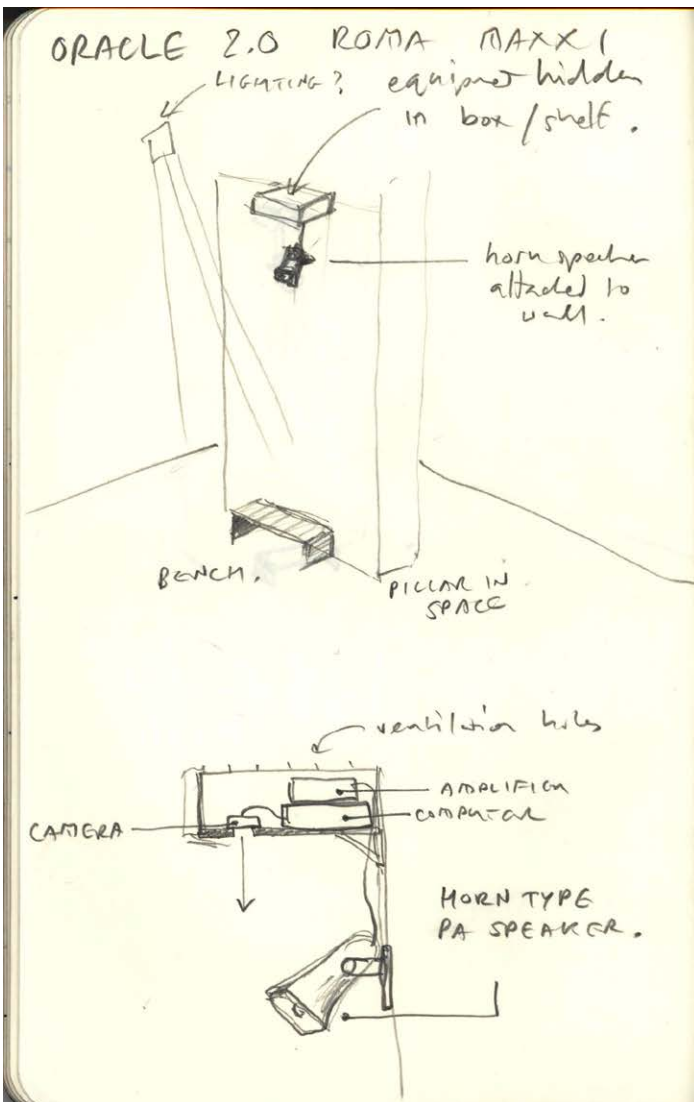 ORACLE 2.0 ROMA MAXXI
LIGHTING?
equipmet hidden
in box / shelf.
horn speaker
attached to
wall.
BENCH.
PILLAR IN
SPACE
ventilation holes
AMPLIFIER
COMPUTER
CAMERA
HORN TYPE
PA SPEAKER.